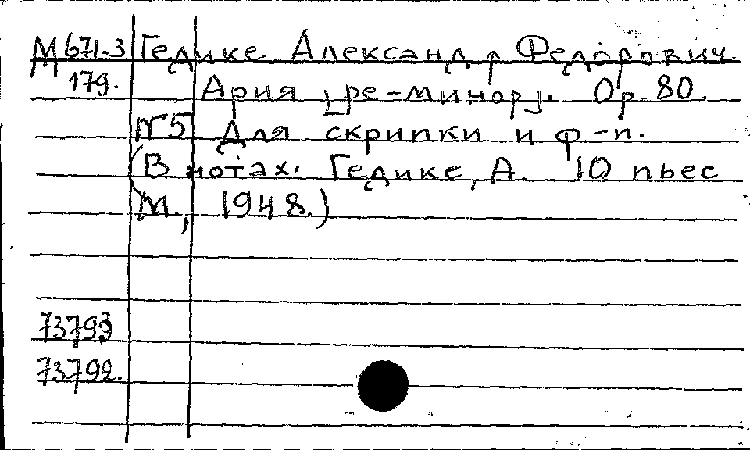 М 671-3 Гедике Александр Федорович.
179. Ария [ре-минор]. Ор. 80.
N5 Для скрипки и ф-п.
(В нотах: Гедике, А. 10 пьес
М., 1948.)
73793
73792.